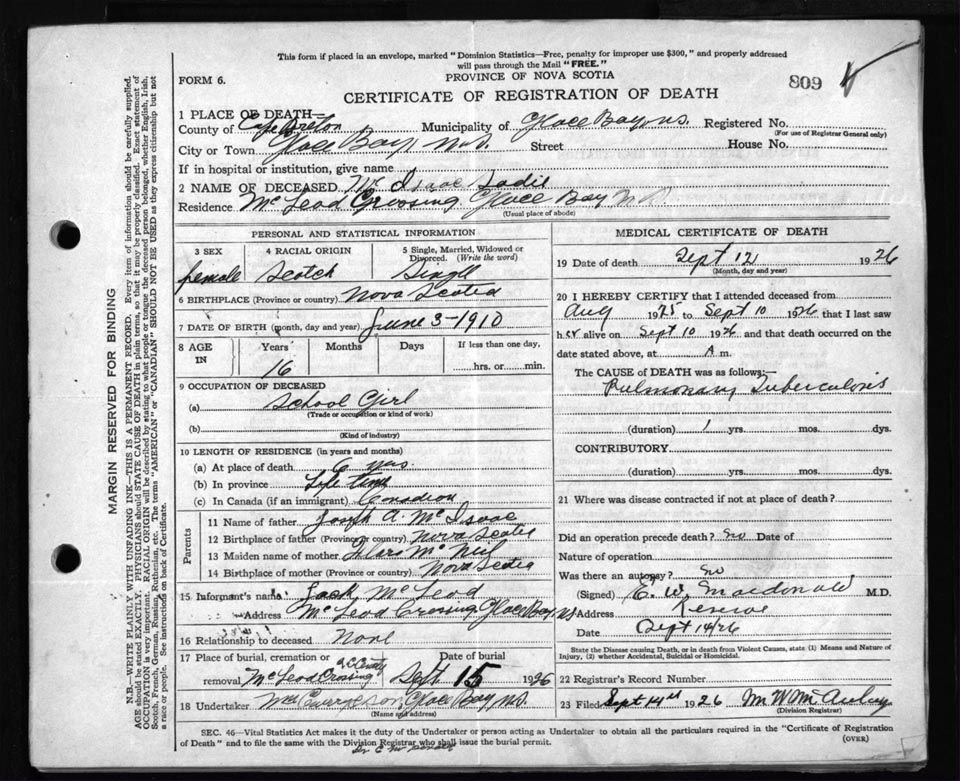 This form if placed in an envelope, marked "Dominion Statistics—Free, penalty for improper use $300," and properly addressed
will pass through the Mail "FREE."
PROVINCE OF NOVA SCOTIA
FORM 6.
809
CERTIFICATE OF REGISTRATION OF DEATH
1 PLACE OF DEATH—
County of Cape Breton Municipality of Glace Bay N.S. Registered No.
(For use of Registrar General only)
City or Town Glace Bay, N.S. Street House No.
If in hospital or institution, give name
2 NAME OF DECEASED Mc Isaac Sadie
Residence McLeod Crossing Glace Bay N S
(Usual place of abode)
PERSONAL AND STATISTICAL INFORMATION
3 SEX 4 RACIAL ORIGIN 5 Single, Married, Widowed or
Divorced (Write the word)
female Scotch Single
6 BIRTHPLACE (Province or country) Nova Scotia
7 DATE OF BIRTH (month, day and year) June 3-1910
8 AGE IN Years Months Days If less than one day,
16 hrs. or min.
9 OCCUPATION OF DECEASED
(a) School Girl
(Trade or occupation or kind of work)
(b)
(Kind of industry)
10 LENGTH OF RESIDENCE (in years and months)
(a) At place of death 6 yrs.
(b) In province Life time
(c) In Canada (if an immigrant) Canadian
Parents
11 Name of father Joseph A. Mc Isaac
12 Birthplace of father (Province or country) Nova Scotia
13 Maiden name of mother Mc Neil
14 Birthplace of mother (Province or country) Nova Scotia
15 Informant's name Jack McLeod
Address McLeod Crossing Glace Bay, NS
16 Relationship to deceased None
17 Place of burial, cremation or Date of burial
removal McLeod Crossing Sept 15 1926
18 Undertaker Glace Bay NS.
(Name and address)
MEDICAL CERTIFICATE OF DEATH
19 Date of death Sept 12 1926
(Month, day and year)
20 I HEREBY CERTIFY that I attended deceased from
Aug 1925 to Sept 10 1926 that I last saw
her alive on Sept 10 1926 and that death occurred on the
date stated above, at A m.
The CAUSE of DEATH was as follows:—
Pulmonary Tuberculosis
(duration) 1 yrs. mos. dys.
CONTRIBUTORY
(duration) yrs. mos. dys.
21 Where was disease contracted if not at place of death?
Did an operation precede death? no Date of
Nature of operation
Was there an autopsy? no
(Signed) E. W. Macdonald M.D.
Address Reserve
Date Sept 14/26
State the Disease causing Death, or in death from Violent Causes, state (1) Means and Nature of
Injury, (2) whether Accidental, Suicidal or Homicidal.
22 Registrar's Record Number
23 Filed Sept 14 1926 M W McAulay
(Division Registrar)
SEC. 46—Vital Statistics Act makes it the duty of the Undertaker or person acting as Undertaker to obtain all the particulars required in the "Certificate of Registration
of Death" and to file the same with the Division Registrar who shall issue the burial permit.
(OVER)
MARGIN RESERVED FOR BINDING
N.B. WRITE PLAINLY WITH UNFADING INK—THIS IS A PERMANENT RECORD. Every item of information should be carefully supplied.
AGE should be stated EXACTLY. PHYSICIANS should STATE CAUSE OF DEATH in plain terms, so that it may be properly classified. Exact statement of
OCCUPATION is very important. RACIAL ORIGIN will be described by stating to what people or tongue the deceased person belonged, whether English, Irish,
Scotch, French, German, Russian, Ruthenian, etc. The terms "AMERICAN" or "CANADIAN" SHOULD NOT BE USED as they express citizenship but not
a race or people. See instructions on back of Certificate.